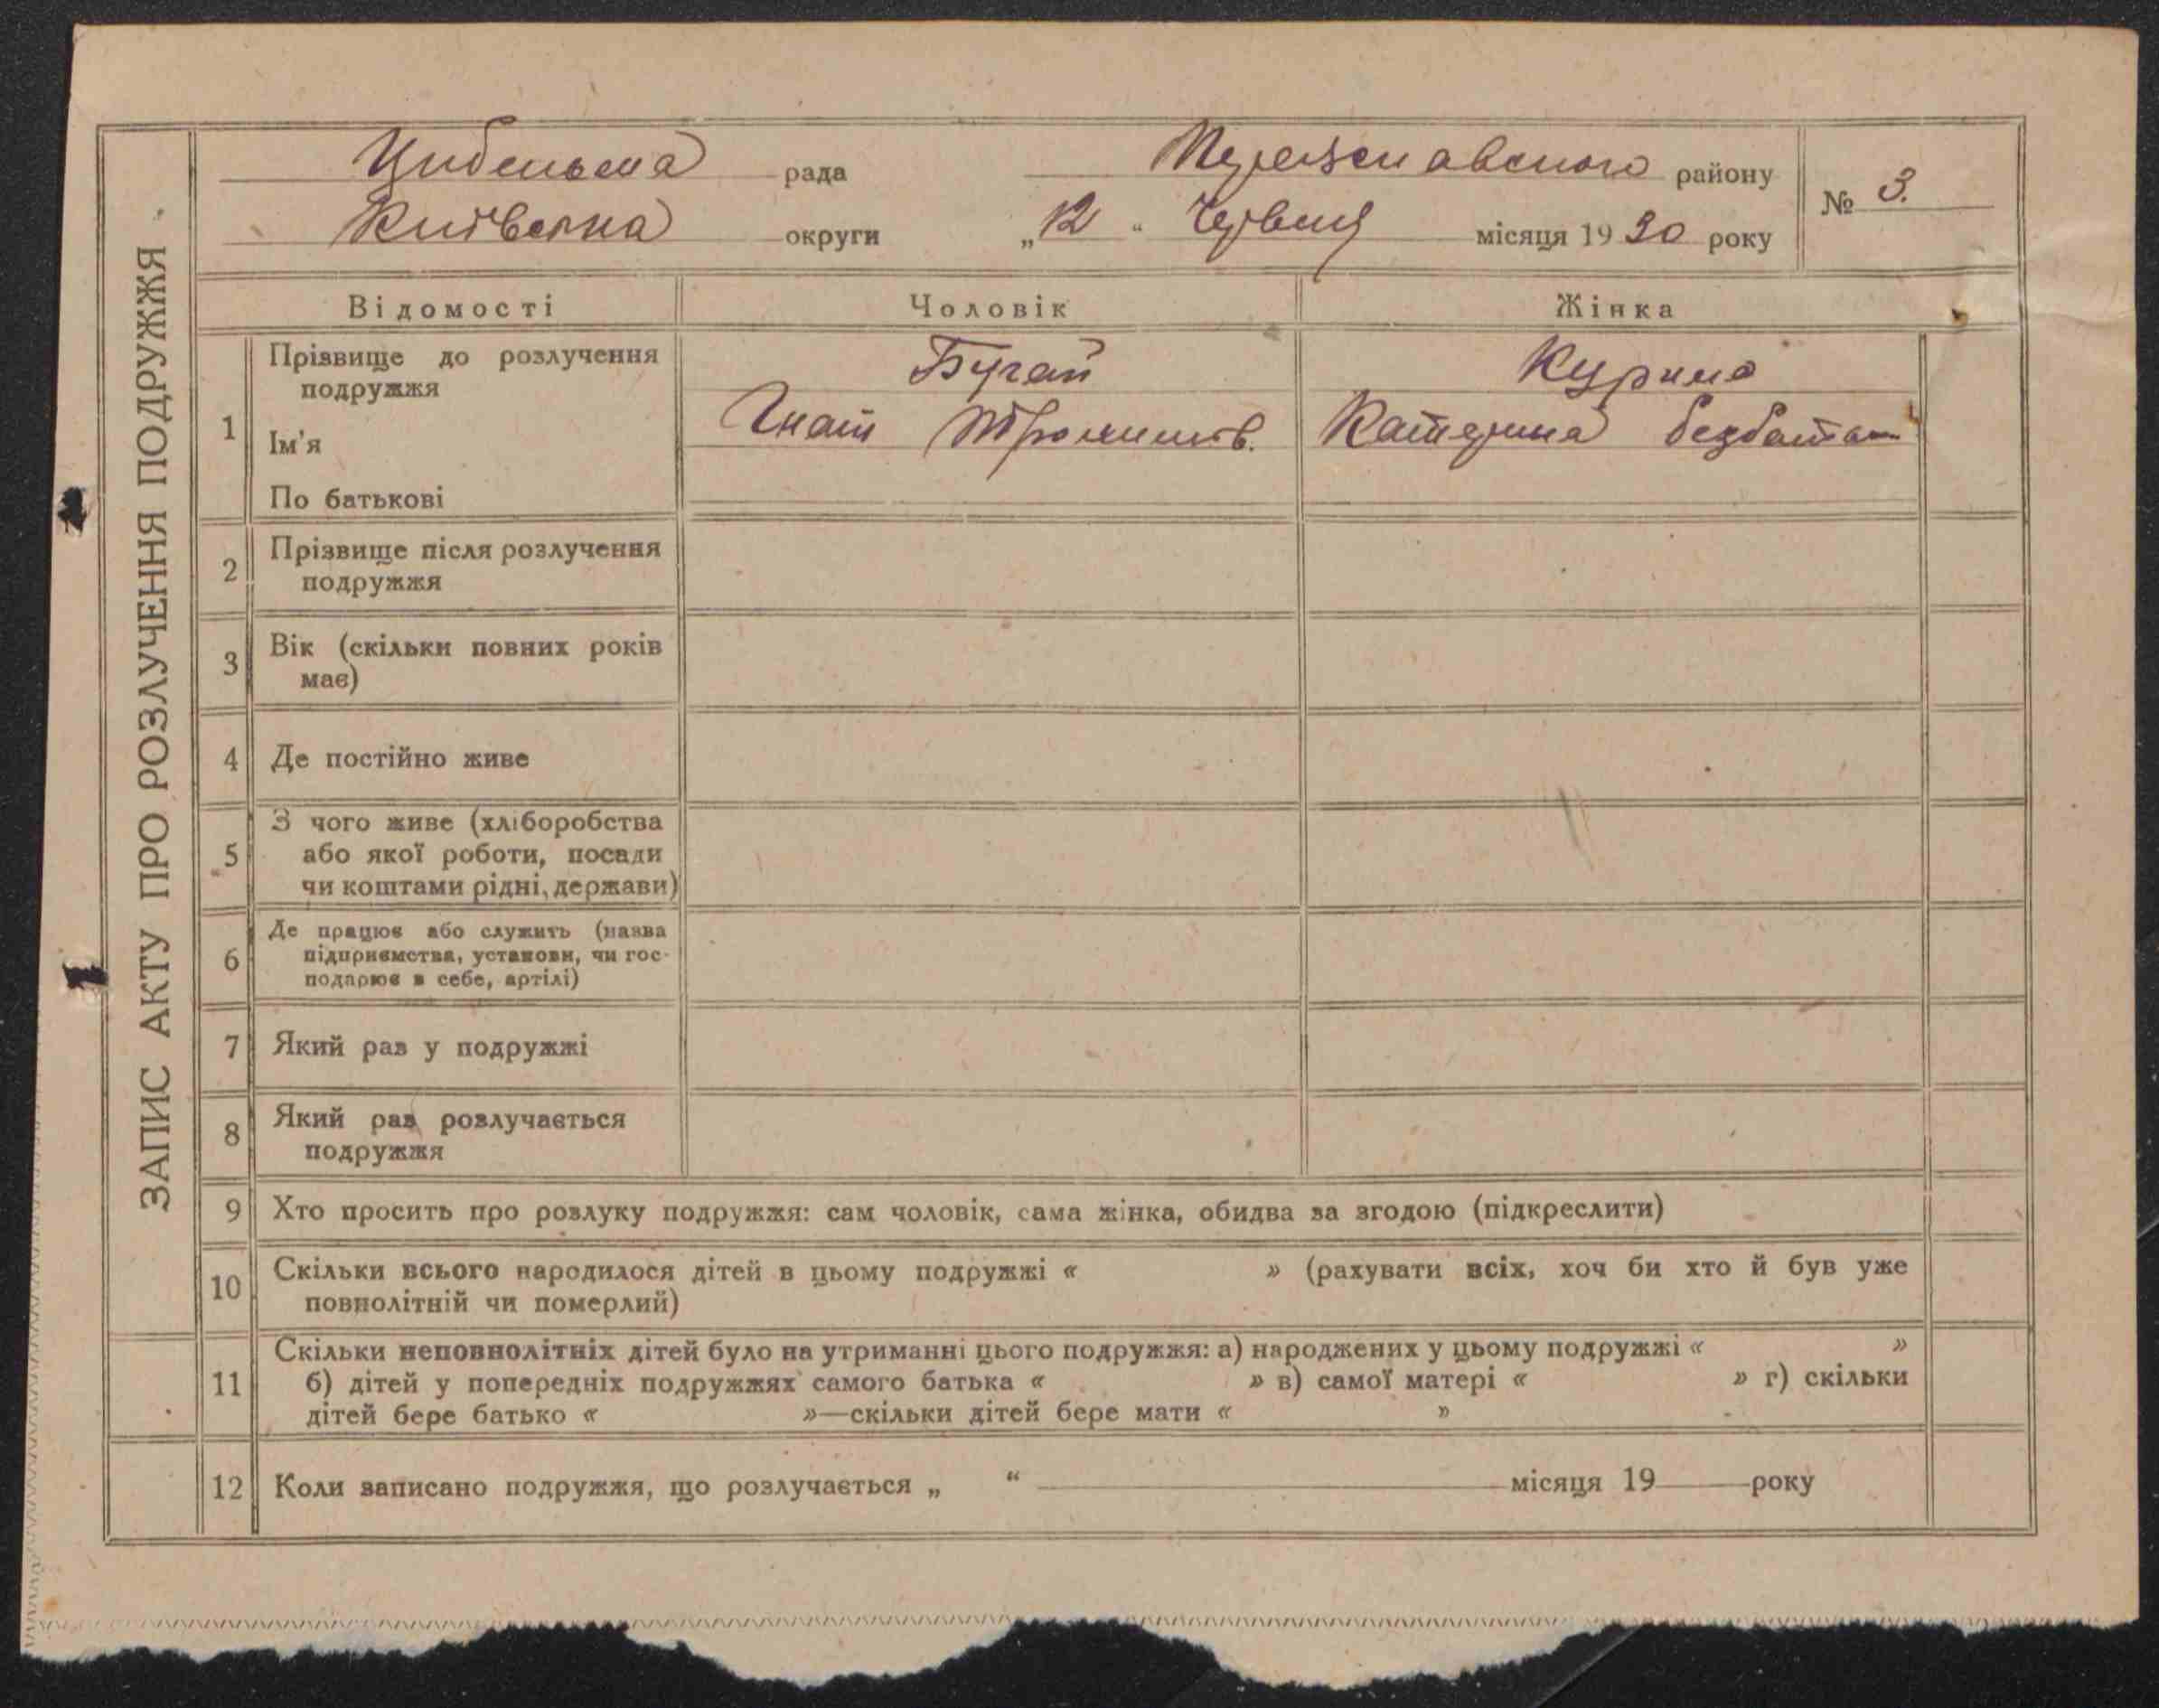 ЗАПИС АКТУ ПРО РОЗЛУЧЕННЯ ПОДРУЖЖЯ
Цибельська рада Переяславського району № 3.
Київська округи „12“ Червня місяця 1930 року
Відомості Чоловік Жінка
1 Прізвище до розлучення Бугай
подружжя
Ім'я Гнат Катерина
По батькові
2 Прізвище після розлучення
подружжя
3 Вік (скільки повних років
має)
4 Де постійно живе
5 З чого живе (хліборобства
або якої роботи, посади
чи коштами рідні, держави)
6 Де працює або служить (назва
підприємства, установи, чи гос-
подарює в себе, артілі)
7 Який раз у подружжі
8 Який раз розлучається
подружжя
9 Хто просить про розлуку подружжя: сам чоловік, сама жінка, обидва за згодою (підкреслити)
10 Скільки всього народилося дітей в цьому подружжі « » (рахувати всіх, хоч би хто й був уже
повнолітній чи померлий)
11 Скільки неповнолітніх дітей було на утриманні цього подружжя: а) народжених у цьому подружжі « »
б) дітей у попередніх подружжях самого батька « » в) самої матері « » г) скільки
дітей бере батько « »—скільки дітей бере мати « »
12 Коли записано подружжя, що розлучається „ “ місяця 19 року